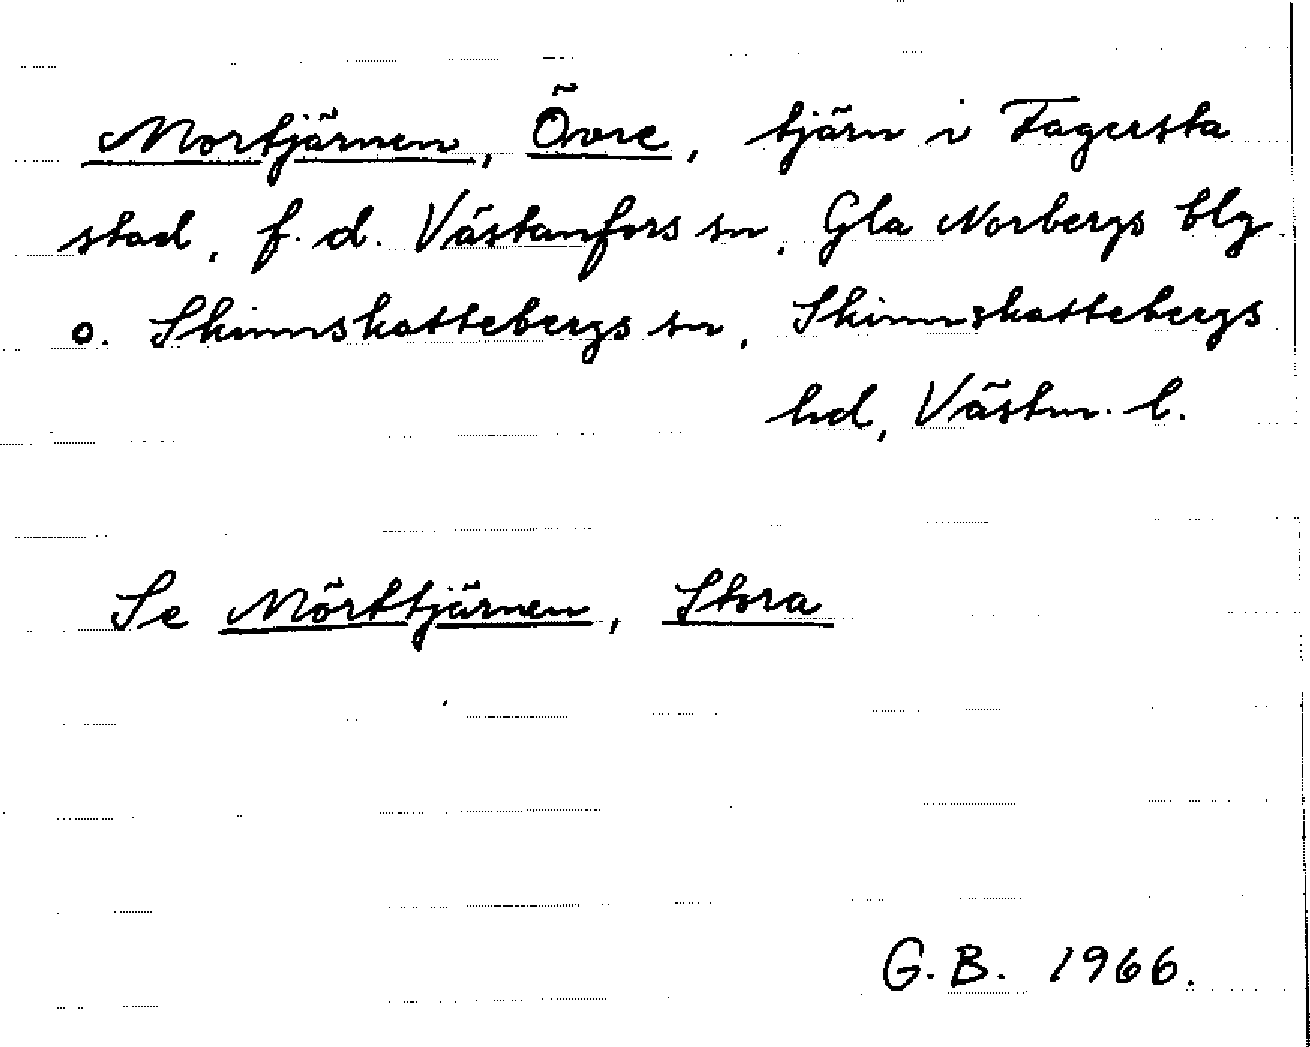 Mortjärnen, Övre, tjärn i Fagersta
stad, f. d. Västanfors sn, Gla Norbergs blg
o. Skinnskattebergs sn, Skinnskattebergs
hd, Västm. l.
Se Mörttjärnen, Stora
G.B. 1966.